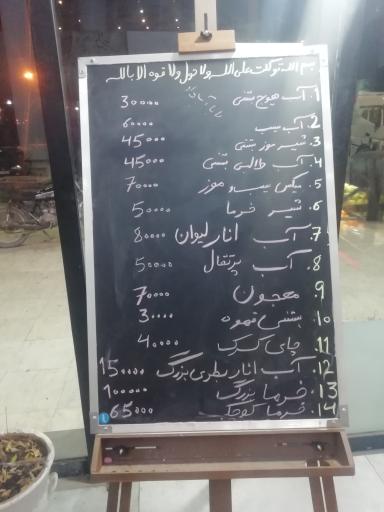 بسم الله توكلت على الله ولا حول ولا قوه الا بالله
1. آب هویج بستنی 30000
2. آب سیب 60000
3. شیر موز بستنی 45000
4. آب طالبی بستنی 45000
5. میکس سیب و موز 70000
6. شیر خرما 50000
7. آب انار لیوان 80000
8. آب پرتقال 50000
9. معجون 70000
10. بستنی قهوه 30000
11. چای کرک 40000
12. آب انار بطری بزرگ 150000
13. خرما بزرگ 100000
14. خرما کوچک 65000